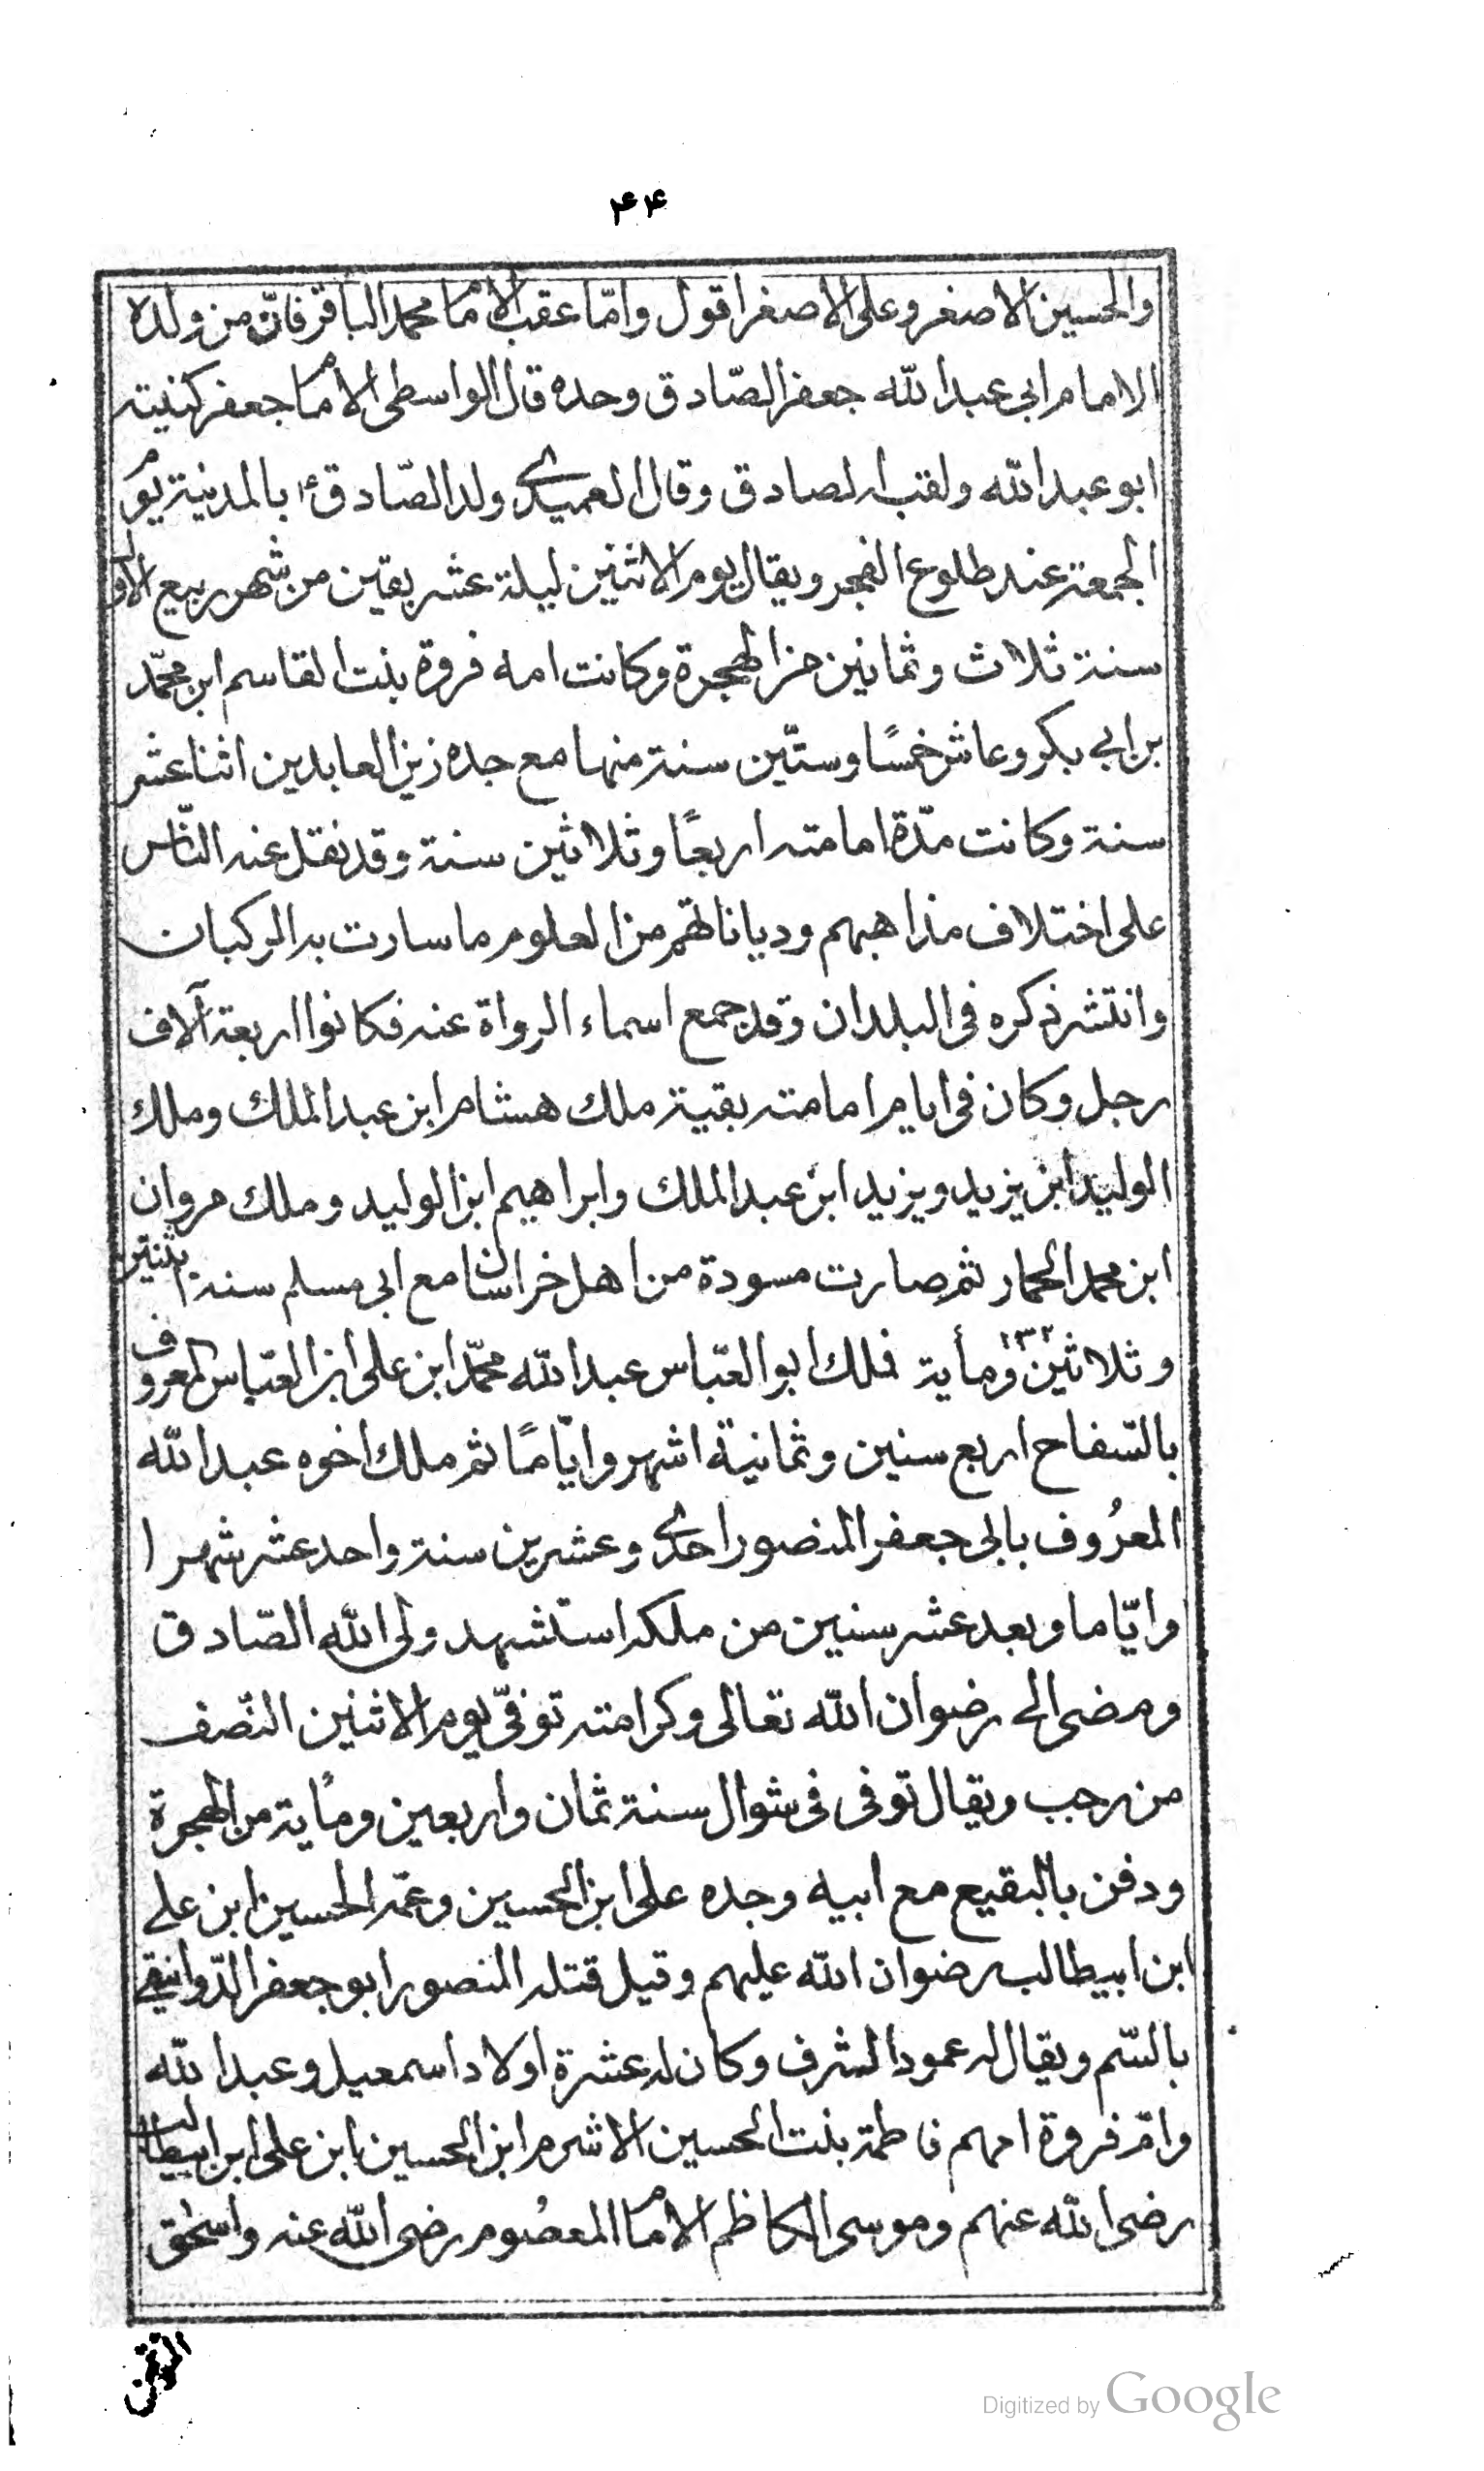 ۴۴
والحسين الاصغر وعلى الاصغر اقول وامّا عقب الامام محمد الباقر فانّ من ولده
الامام ابى عبد الله جعفر الصّادق وحده قال الواسطى الامام جعفر كنيته
ابو عبد الله ولقبه الصادق وقال العميدى ولد الصّادق ؑ بالمدينة يوم
الجمعة عند طلوع الفجر ويقال يوم الاثنين ليلة عشر بقين من شهر ربيع الاول
سنة ثلاث وثمانين من الهجرة وكانت امه فروة بنت القاسم ابن محمّد
بن ابى بكر وعاش خمسًا وستّين سنة منها مع جده زين العابدين اثنا عشر
سنة وكانت مدّة امامته اربعًا وثلاثين سنة وقد نقل عنه النّاس
على اختلاف مذاهبهم ودياناتهم من العلوم ما سارت به الركبان
وانتشر ذكره فى البلدان وقد جمع اسماء الرواة عنه فكانوا اربعة آلاف
رجل وكان فى ايام امامته بقية ملك هشام ابن عبد الملك وملك
الوليد ابن يزيد ويزيد ابن عبد الملك وابراهيم ابن الوليد وملك مروان
ابن محمد الحمار ثم صارت مسودة من اهل خراسان مع ابى مسلم سنة اثنتين
وثلاثين ۱۳۲ ومأية فملك ابو العبّاس عبد الله محمّد ابن على ابن العبّاس المعروف
بالسّفاح اربع سنين وثمانية اشهر وايّامًا ثم ملك اخوه عبد الله
المعرُوف بابى جعفر المنصور احدى وعشرين سنة واحد عشر شهرا
وايّاما وبعد عشر سنين من ملكه استشهد ولى الله الصّادق
ومضى الى رضوان الله تعالى وكرامته توفّى يوم الاثنين النّصف
من رجب ويقال توفى فى شوال سنة ثمان واربعين ومأية من الهجرة
ودفن بالبقيع مع ابيه وجده على ابن الحسين وعمّه الحسين ابن على
ابن ابيطالب رضوان الله عليهم وقيل قتله المنصور ابو جعفر الدّوانيقى
بالسّم ويقال له عمود الشرف وكان له عشرة اولاد اسمعيل وعبد الله
وامّ فروة امهم فاطمة بنت الحسين الاشرم ابن الحسين ابن على ابن ابيطالب
رضى الله عنهم وموسى الكاظم الامام المعصُوم رضى الله عنه واسحٰق
Digitized by Google